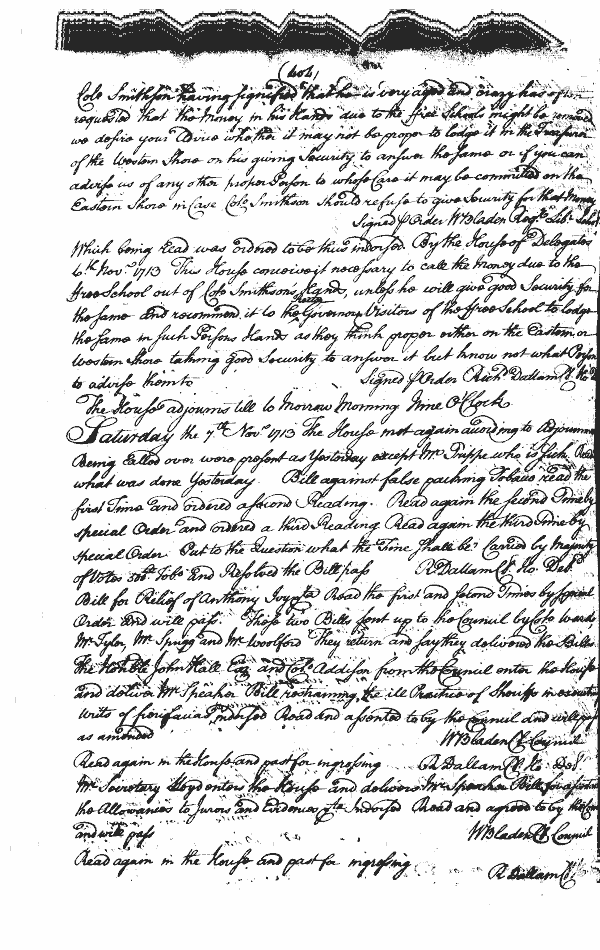 (404)
Colo Smithson having signified that he is very aged and crazy has often
requested that the Money in his Hands due to the ffree Schools might be removed
we desire your Advice whether it may not be proper to lodge it in the Treasurer
of the Western Shore on his giving Security to answer the same or if you can
advise us of any other proper Person to whose Care it may be committed on the
Eastern Shore in Case Colo Smithson should refuse to give Security for that Money
Signed p Order WBladen
Which being read was ordered to be thus indorsed By the House of Delegates
6th Novr 1713 This House conceive it necessary to call the Money due to the
ffree School out of Colo Smithsons Hands, unless he will give good Security for
the same and recommend it to the Governor Visitors of the ffree School to lodge
the same in such Persons Hands as they think proper either on the Eastern or
Western Shore taking good Security to answer it but know not what Person
to advise them to Signed p Order Richd Dallam Cl Ho
The House adjourns till to Morrow Morning Nine O'Clock
Saturday the 7th Novr 1713 The House met again according to Adjournment
Being called over were present as Yesterday except Mr Trippe who is sick Read
what was done Yesterday Bill against false packing Tobacco read the
first Time and ordered a second Reading. Read again the second Time by
special Order and ordered a third Reading Read again the third Time by
special Order Put to the Question what the Fine shall be Carried by Majority
of Votes Tobo and Resolved the Bill pass RDallam Cl Ho Del
Bill for Relief of Anthony Read the first and second Times by special
Order and will pass. These two Bills sent up to the Council by
Mr Tyler, Mr Sprigg and Mr Woolford They return and say they delivered the Bills
The Honble John Hall Esq and Colo Addison from the Council enter the House
and deliver Mr Speaker Bill restraining the ill Practice of Sheriffs in executing
writs of fierifacias indorsed Read and assented to by the Council and will pass
as amended WBladen Cl Council
Read again in the House and past for ingrossing RDallam Cl Ho Del
Mr Secretary Lloyd enters the House and delivers Mr Speaker Bill for
the Allowances to Jurors and Evidences &ca Indorsed Read and agreed to by the
and will pass WBladen Cl Council
Read again in the House and past for ingrossing RDallam Cl